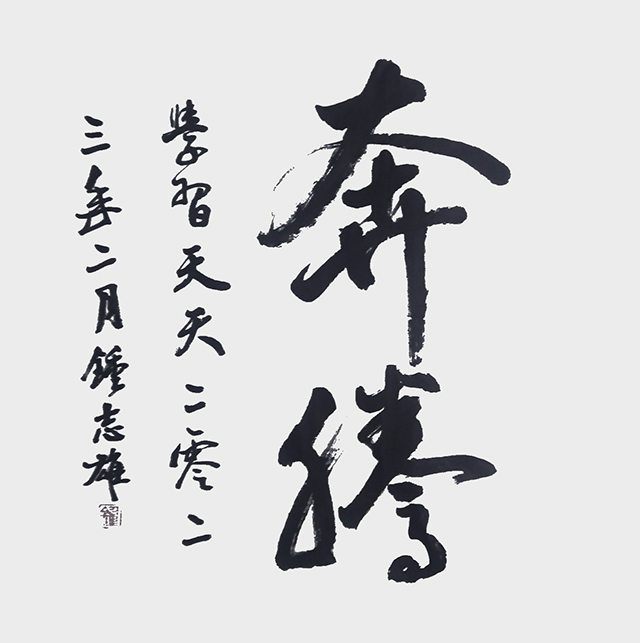 奔腾
學習天天二零二
三年二月鍾志雄